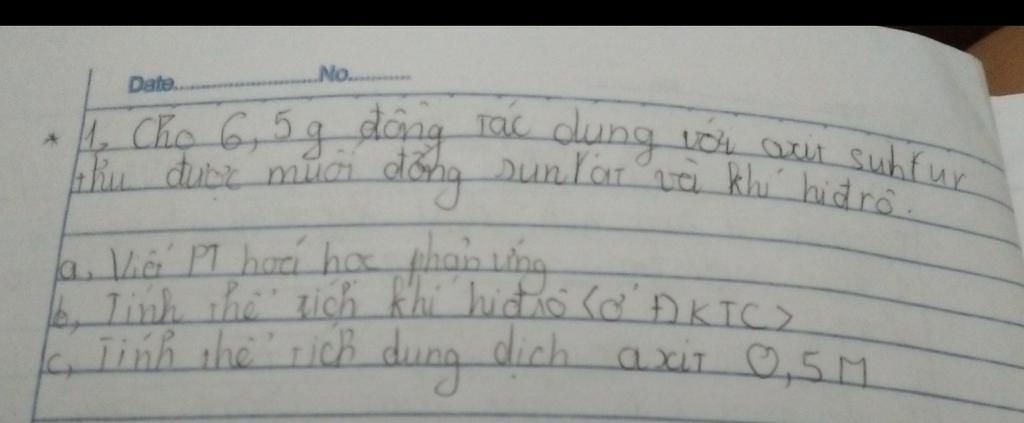 Date............No.........
* 1, Cho 6,5g đồng tác dụng với axit suhfur
thu được muối đồng sunfat và khí hiđrô.
a, Viết PT hoá học phản ứng
b, Tính thể tích khí hiđrô <ở ĐKTC>
c, Tính thể tích dung dịch axit 0,5M